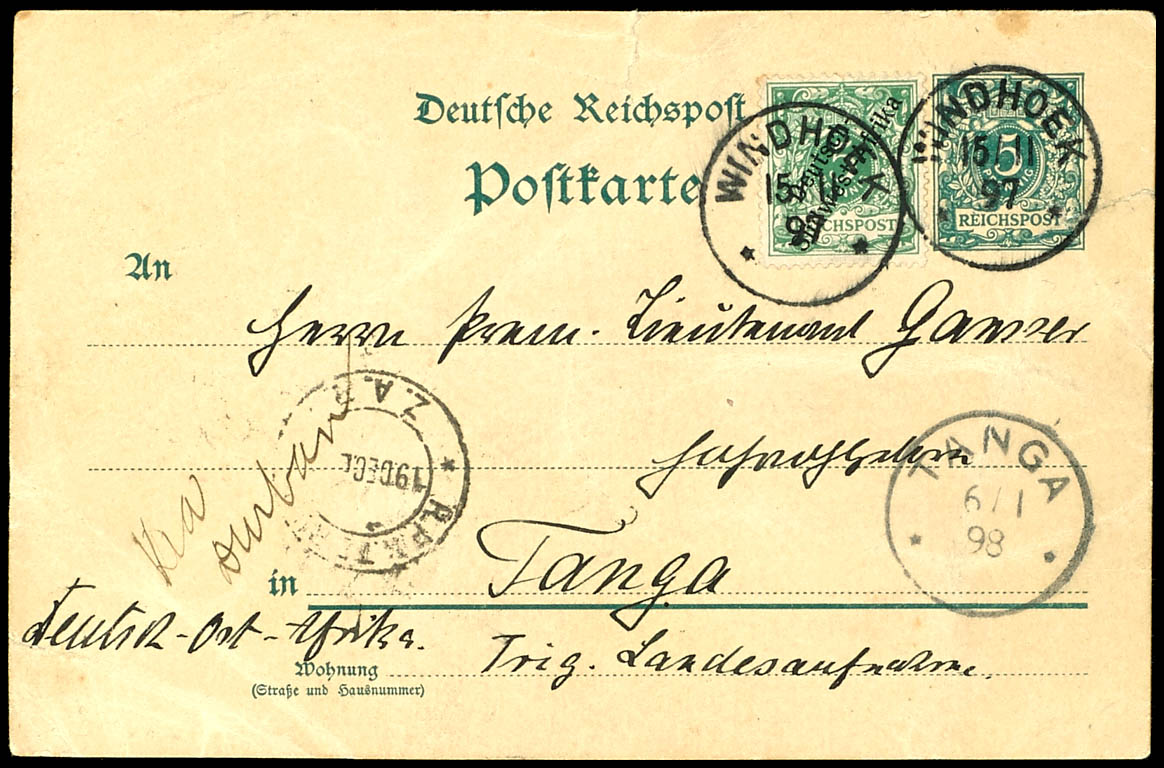 Deutsche Reichspost
Postkarte
Deutsch-
Südwest-Afrika
REICHSPOST
WINDHOEK
15/11
97
5
PFENNIG
REICHSPOST
WINDHOEK
15/11
97
An
Herrn Prem. Lieutenant
Z.A.R.
19 DEC
TANGA
6/1
98
Via
Durban
in Tanga
Deutsch-Ost-Afrika.
Wohnung
(Straße und Hausnummer)
Trig. Landesaufnahme.